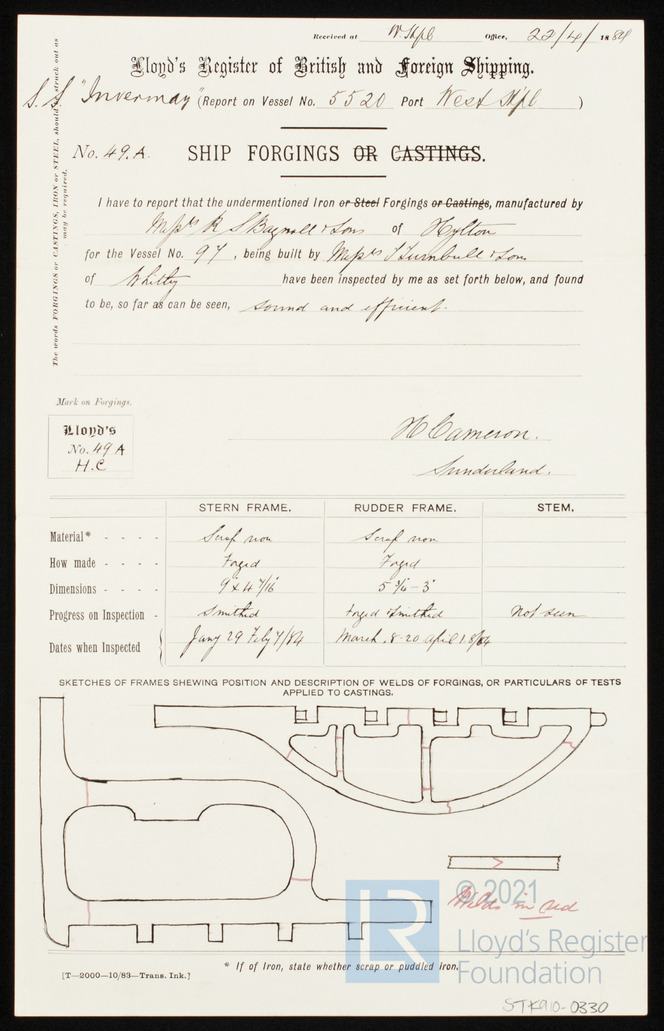 Received at W. Htpl Office, 22/4/1884
Lloyd's Register of British and Foreign Shipping.
S.S. "Invermay" (Report on Vessel No. 5520 Port West Htpl )
No. 49.A. SHIP FORGINGS OR CASTINGS.
The words FORGINGS or CASTINGS, IRON or STEEL, should be struck out as
may be required.
I have to report that the undermentioned Iron or Steel Forgings or Castings, manufactured by
Messrs R S Bagnall & Sons of Hylton
for the Vessel No. 97, being built by Messrs T Turnbull & Son
of Whitby have been inspected by me as set forth below, and found
to be, so far as can be seen, sound and efficient.
Mark on Forgings.
Lloyd's
No. 49 A
H.C
H Cameron.
Sunderland.
STERN FRAME. RUDDER FRAME. STEM.
Material* - - - - Scrap iron Scrap iron
How made - - - - Forged Forged
Dimensions - - - - 9 x 4 7/16" 5 3/4 - 3"
Progress on Inspection - Smithed Forged & Smithed Not seen
Dates when Inspected Jany 29 Feby 7/84 March. 8-20 April 18/84
SKETCHES OF FRAMES SHEWING POSITION AND DESCRIPTION OF WELDS OF FORGINGS, OR PARTICULARS OF TESTS
APPLIED TO CASTINGS.
Welds in red
© 2021
LR
Lloyd's Register
Foundation
* If of Iron, state whether scrap or puddled iron.
[T—2000—10/83—Trans. Ink.]
STK910-0330